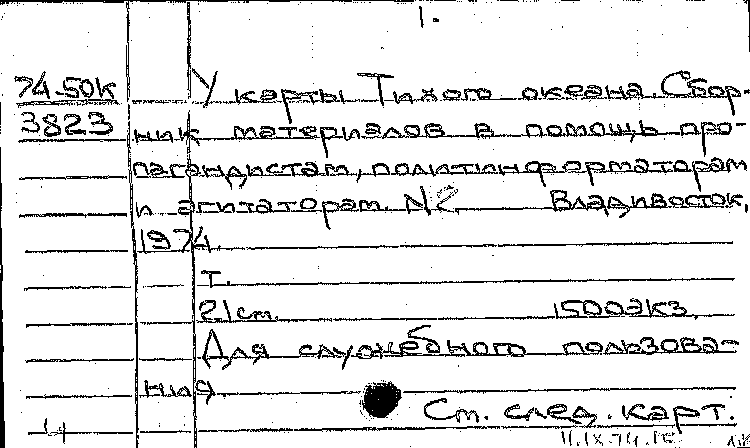 1.
74-50к У карты Тихого океана. Сбор-
3823 ник материалов в помощь про-
пагандистам, политинформаторам
и агитаторам. № 2. Владивосток,
1974.
т.
21 см. 1500 экз.
Для служебного пользова-
ния.
См. след. карт.